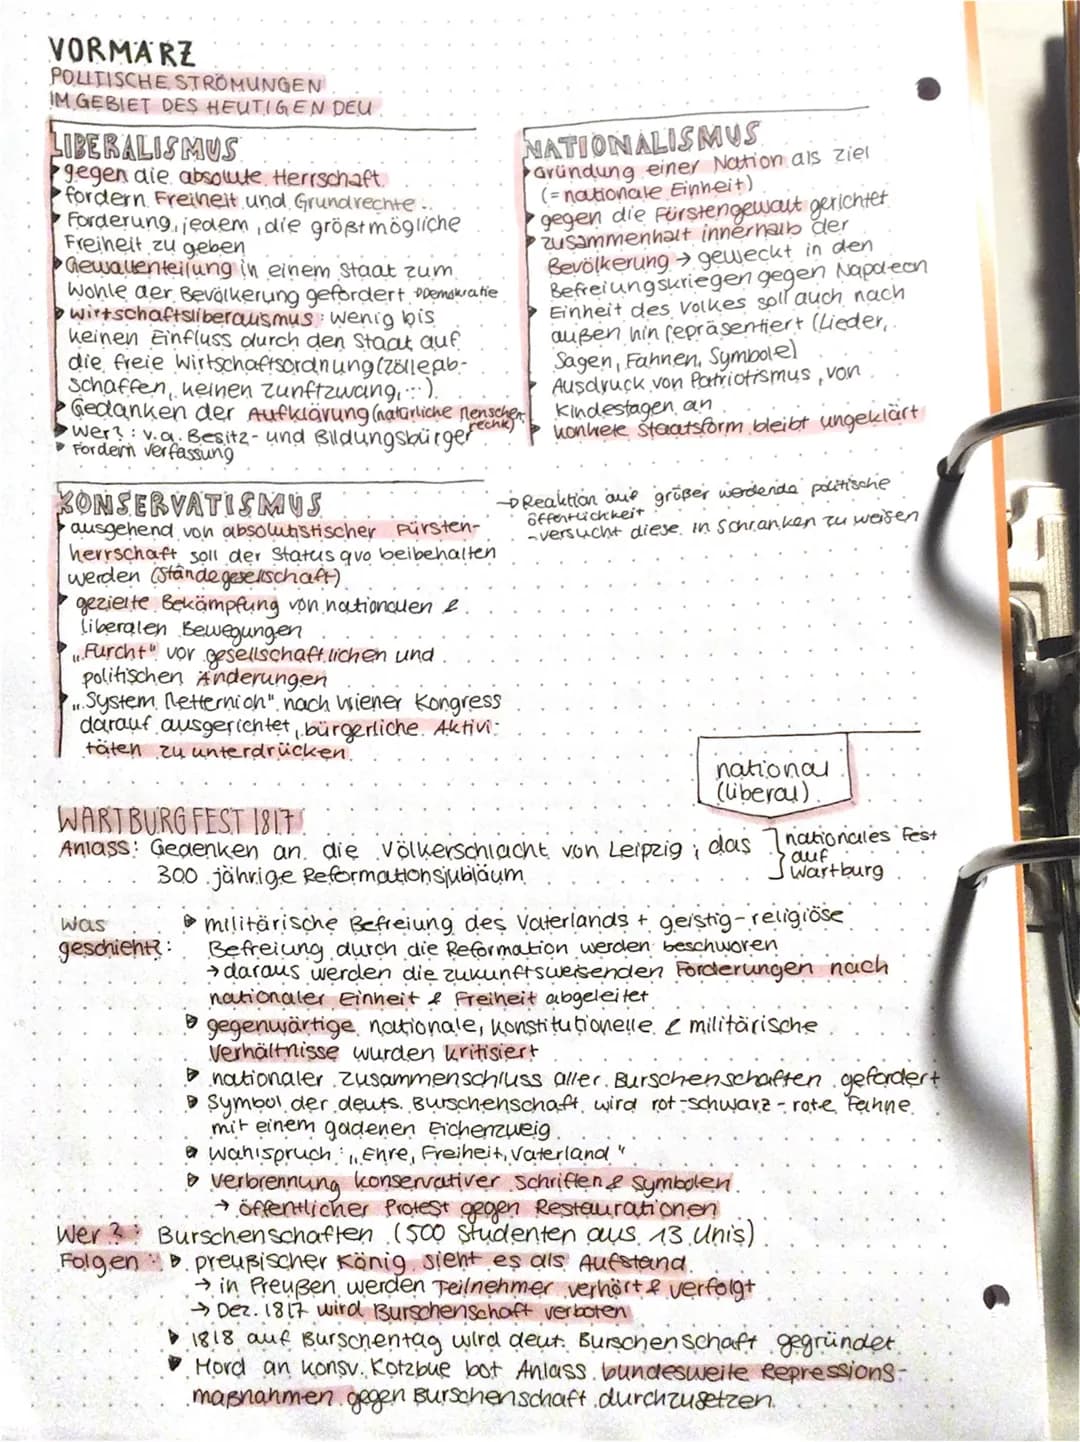 VORMÄRZ
POLITISCHE STRÖMUNGEN
IM GEBIET DES HEUTIGEN DEU
LIBERALISMUS
gegen die absolute Herrschaft
fordern Freiheit und Grundrechte
Forderung, jedem, die größtmögliche
Freiheit zu geben
Gewaltenteilung in einem Staat zum
Wohle der Bevölkerung gefordert → Demokratie
wirtschaftsliberalismus: wenig bis
keinen Einfluss durch den Staat auf
die freie Wirtschaftsordnung (Zölle ab-
schaffen, keinen Zunftzwang, ...)
Gedanken der Aufklärung (natürliche Menschen
rechte)
wer?: v.a. Besitz- und Bildungsbürger
Fordern Verfassung
NATIONALISMUS
Gründung einer Nation als Ziel
(= nationale Einheit)
gegen die Fürstengewalt gerichtet
zusammenhalt innerhalb der
Bevölkerung → geweckt in den
Befreiungskriegen gegen Napoleon
Einheit des Volkes soll auch nach
außen hin repräsentiert (Lieder,
Sagen, Fahnen, Symbole)
Ausdruck von Patriotismus, von
Kindestagen an
konkrete Staatsform bleibt ungeklärt
KONSERVATISMUS
ausgehend von absolutistischer Fürsten-
herrschaft soll der Status quo beibehalten
werden (Ständegesellschaft)
gezielte Bekämpfung von nationalen &
liberalen Bewegungen
„Furcht" vor gesellschaftlichen und
politischen Änderungen
„System Metternich" nach Wiener Kongress
darauf ausgerichtet, bürgerliche Aktivi-
täten zu unterdrücken
→ Reaktion auf größer werdende politische
öffentlichkeit
- versucht diese in Schranken zu weisen
national
(liberal)
WARTBURGFEST 1817
Anlass: Gedenken an die Völkerschlacht von Leipzig; das
300 jährige Reformationsjubiläum
nationales Fest
auf
Wartburg
Was
geschieht?:
militärische Befreiung des Vaterlands + geistig-religiöse
Befreiung durch die Reformation werden beschworen
→ daraus werden die zukunftsweisenden Forderungen nach
nationaler Einheit & Freiheit abgeleitet
gegenwärtige nationale, konstitutionelle & militärische
Verhältnisse wurden kritisiert
nationaler Zusammenschluss aller Burschenschaften gefordert
Symbol der deuts. Burschenschaft wird rot-schwarz-rote Fahne
mit einem goldenen Eichenzweig
Wahlspruch: „Ehre, Freiheit, Vaterland"
Verbrennung konservativer Schriften & Symbolen
→ öffentlicher Protest gegen Restaurationen
Wer?: Burschenschaften (500 Studenten aus 13 Unis)
Folgen: preußischer König sieht es als Aufstand
→ in Preußen werden Teilnehmer verhört & verfolgt
→ Dez. 1817 wird Burschenschaft verboten
1818 auf Burschentag wird deut. Burschenschaft gegründet
Mord an konsv. Kotzbue bot Anlass bundesweite Repressions-
maßnahmen gegen Burschenschaft durchzusetzen